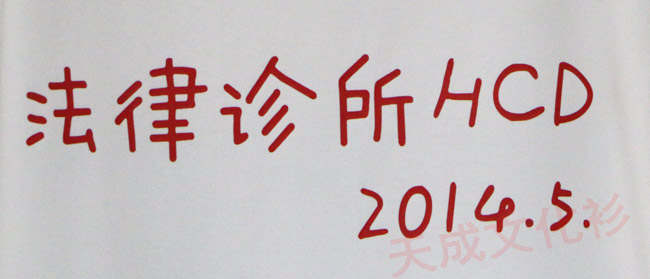 法律诊所HCD
2014.5.
天成文化衫